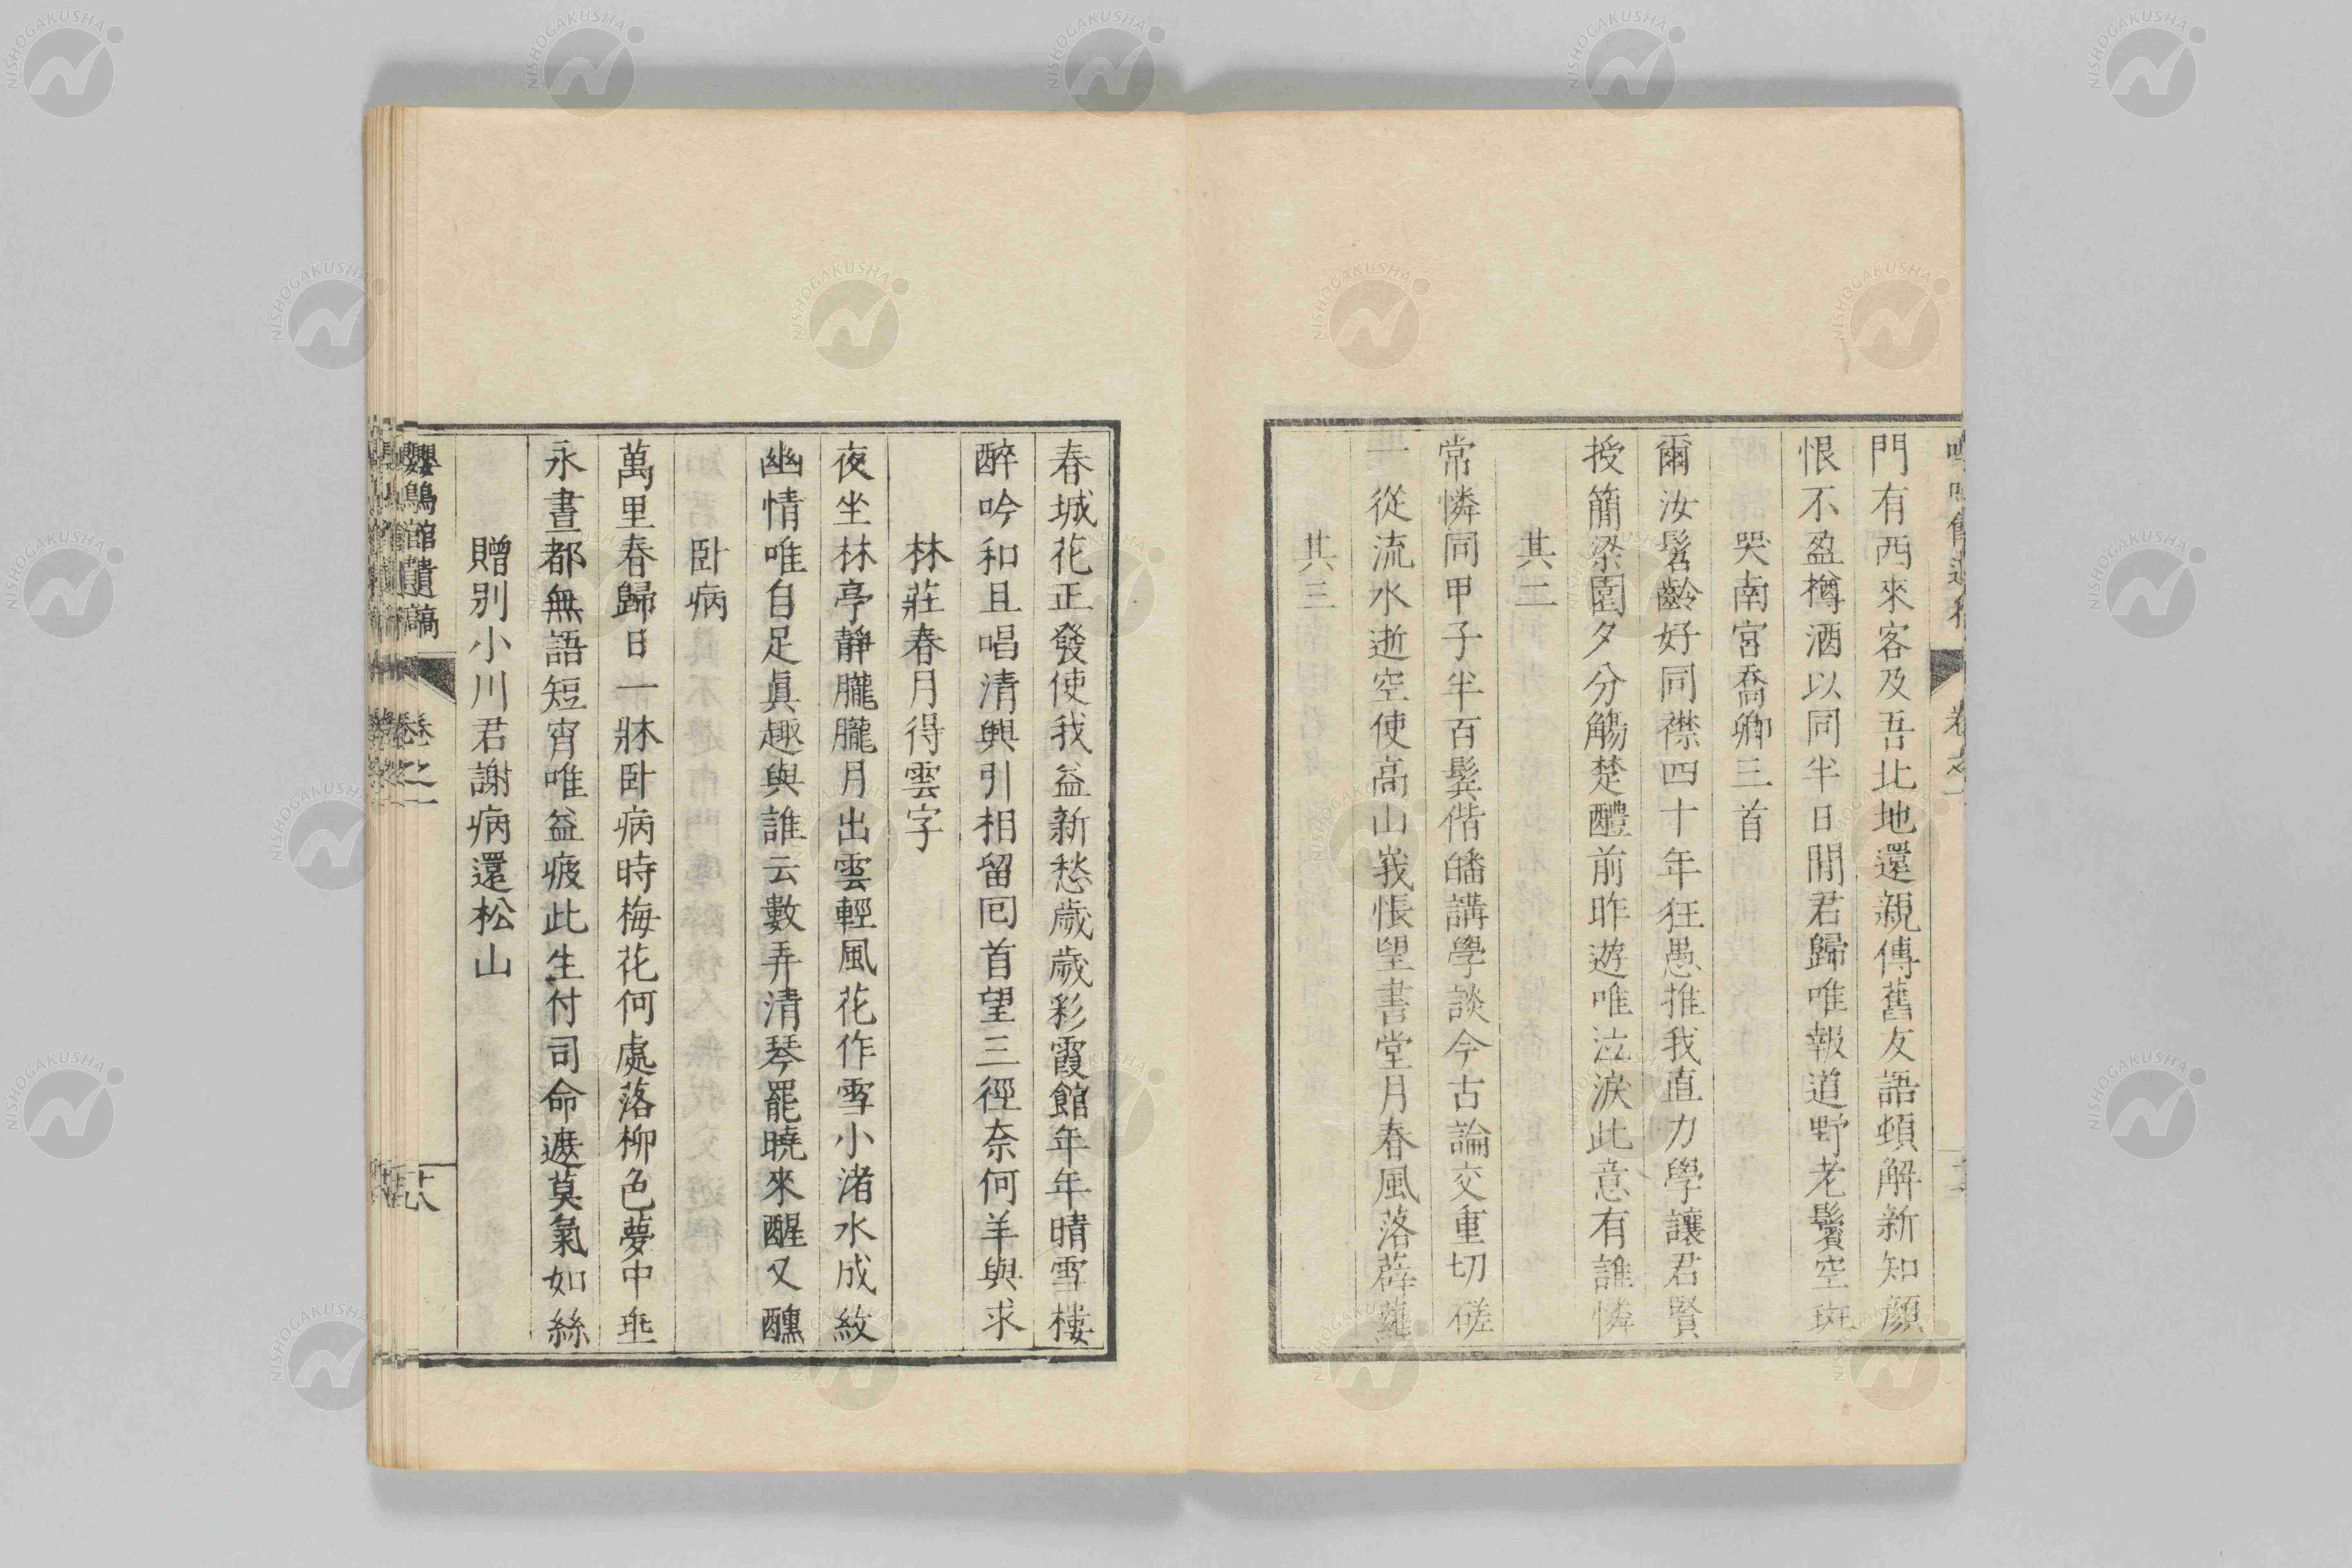 門有西來客及吾北地還親傳舊友語頓解新知顔
恨不盈樽酒以同半日閒君歸唯報道野老鬢空斑
哭南宮喬卿三首
爾汝髫齡好同襟四十年狂愚推我直力學讓君賢
授簡梁園夕分觴楚醴前昨遊唯泣淚此意有誰憐
其二
常憐同甲子半百鬂偕皤講學談今古論交重切磋
一從流水逝空使高山峩悵望書堂月春風落薜蘿
其三
春城花正發使我益新愁歲歲彩霞館年年晴雪樓
醉吟和且唱清興引相留囘首望三徑奈何羊與求
林莊春月得雲字
夜坐林亭靜朧朧月出雲輕風花作雪小渚水成紋
幽情唯自足眞趣與誰云數弄清琴罷曉來醒又醺
臥病
萬里春歸日一牀臥病時梅花何處落柳色夢中垂
永晝都無語短宵唯益疲此生付司命遮莫氣如絲
贈別小川君謝病還松山
嚶鳴館遺稿 卷之一 十八
NISHOGAKUSHA